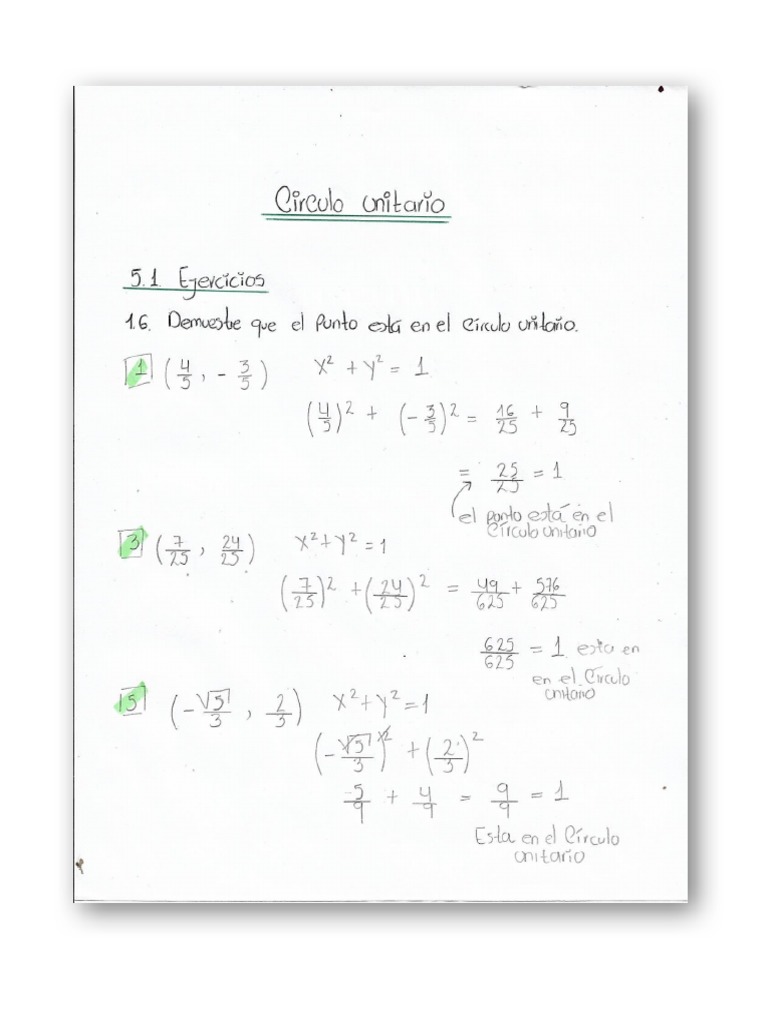 Circulo unitario
5.1. Ejercicios
1.6. Demuestre que el Punto está en el circulo unitario.
1 (4/5, -3/5) x² + y² = 1
(4/5)² + (-3/5)² = 16/25 + 9/25
= 25/25 = 1
el punto está en el
Círculo unitario
3 (7/25, 24/25) x² + y² = 1
(7/25)² + (24/25)² = 49/625 + 576/625
625/625 = 1 esta en
en el Círculo
unitario
5 (-√5/3, 2/3) x² + y² = 1
(-√5/3)² + (2/3)²
5/9 + 4/9 = 9/9 = 1
Esta en el Círculo
unitario